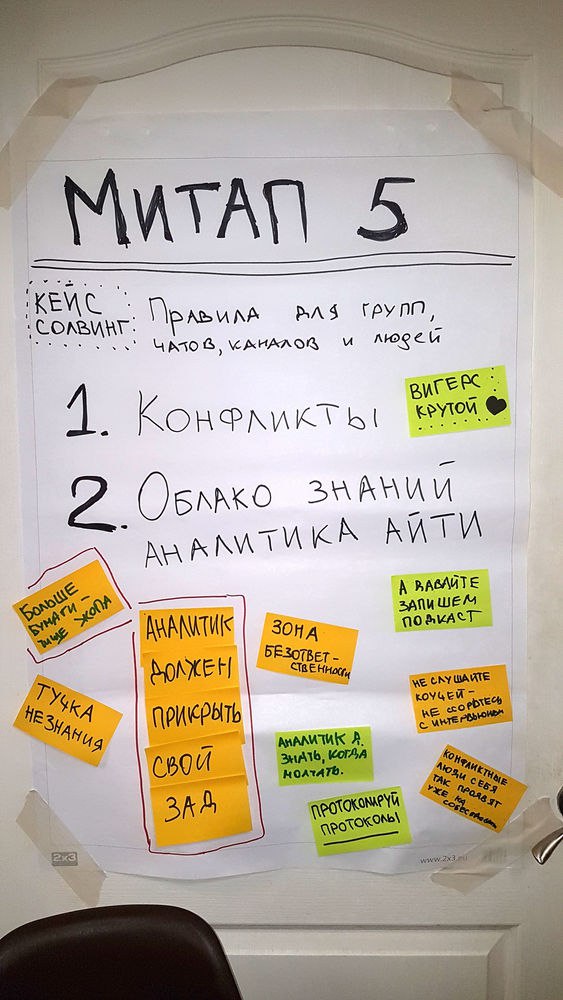 МИТАП 5
КЕЙС
СОЛВИНГ
ПРАВИЛА ДЛЯ ГРУПП,
ЧАТОВ, КАНАЛОВ И ЛЮДЕЙ
1. КОНФЛИКТЫ
ВИГЕРС
КРУТОЙ
2. ОБЛАКО ЗНАНИЙ
АНАЛИТИКА АЙТИ
БОЛЬШЕ
БУМАГИ –
ЖОПА
АНАЛИТИК
ДОЛЖЕН
ПРИКРЫТЬ
СВОЙ
ЗАД
ЗОНА
БЕЗОТВЕТ-
СТВЕННОСТИ
А ДАВАЙТЕ
ЗАПИШЕМ
ПОДКАСТ
ТУЧКА
НЕЗНАНИЯ
НЕ СЛУШАЙТЕ
КОУЧЕЙ –
НЕ ССОРЬТЕСЬ
С ИНТЕРВЬЮЕМ
АНАЛИТИК Д.
ЗНАТЬ, КОГДА
МОЛЧАТЬ.
КОНФЛИКТНЫЕ
ЛЮДИ СЕБЯ
ТАК ПРОЯВЯТ
УЖЕ НА
ПРОТОКОЛИРУЙ
ПРОТОКОЛЫ
2x3
www.2x3.eu